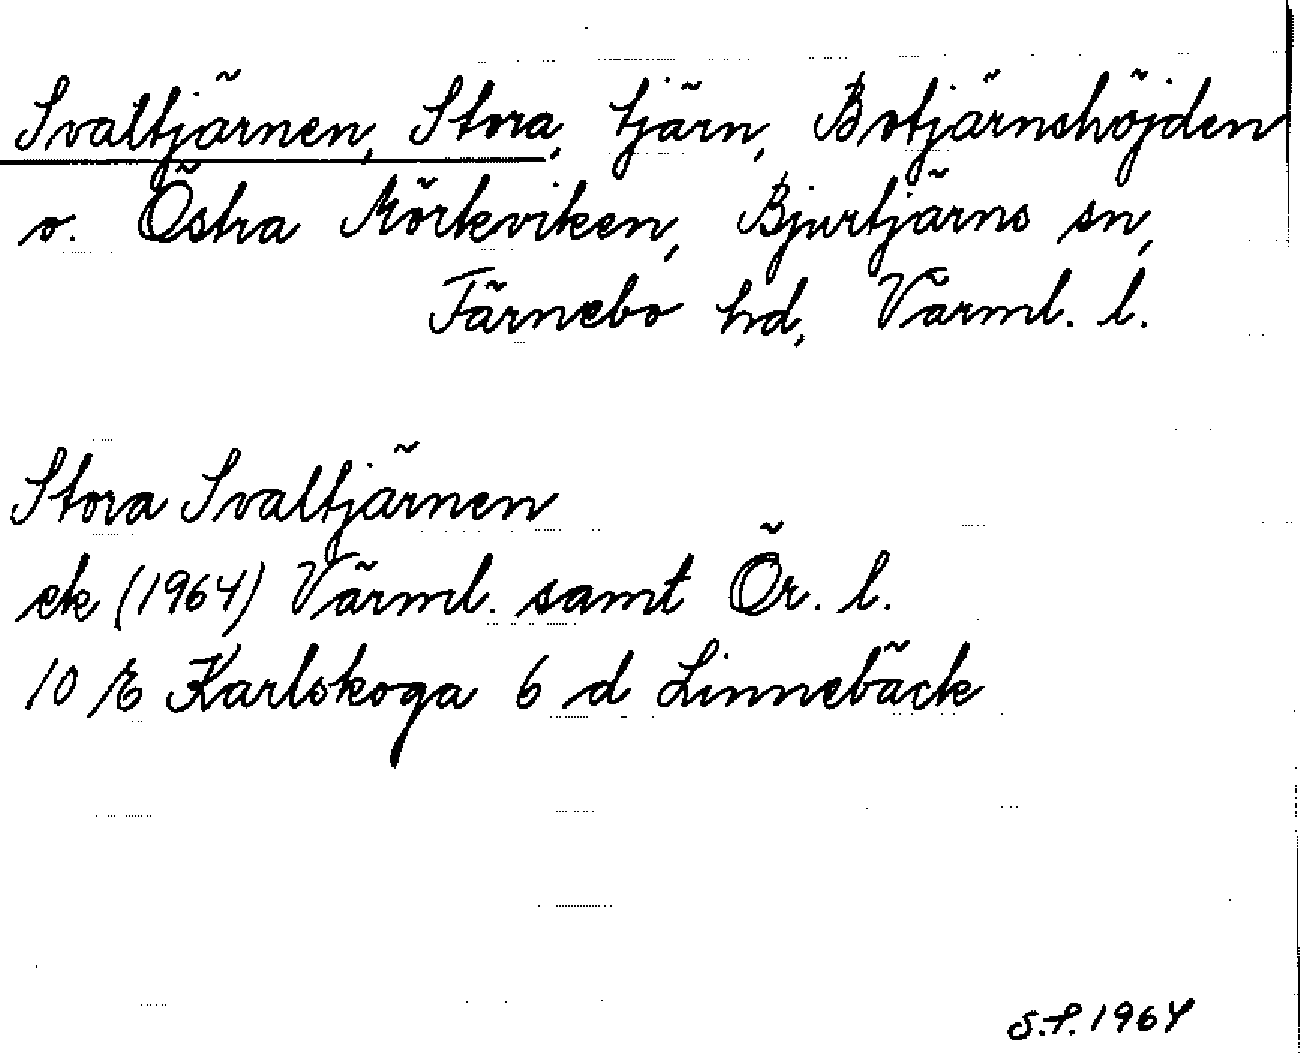 Svaltjärnen, Stora, tjärn, Botjärnshöjden
o. Östra Mörkviken, Bjurtjärns sn,
Färnebo hd, Värml. l.
Stora Svaltjärnen
ek (1964) Värml. samt Ör. l.
10 E Karlskoga 6 d Linnebäck
S.P. 1964